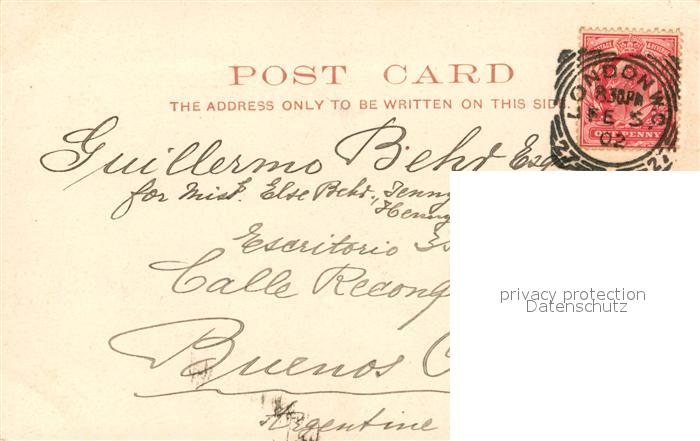 POST CARD
THE ADDRESS ONLY TO BE WRITTEN ON THIS SID
POSTAGE & REVENUE
ONE PENNY
LONDON W.C.
8.30 PM
FE 5
02
27 27
Guillermo Behd Esq
for Miss. Else Behd., Jenny
Henny
Escritorio
Calle Reconq
Buenos
Argentine
privacy protection
Datenschutz